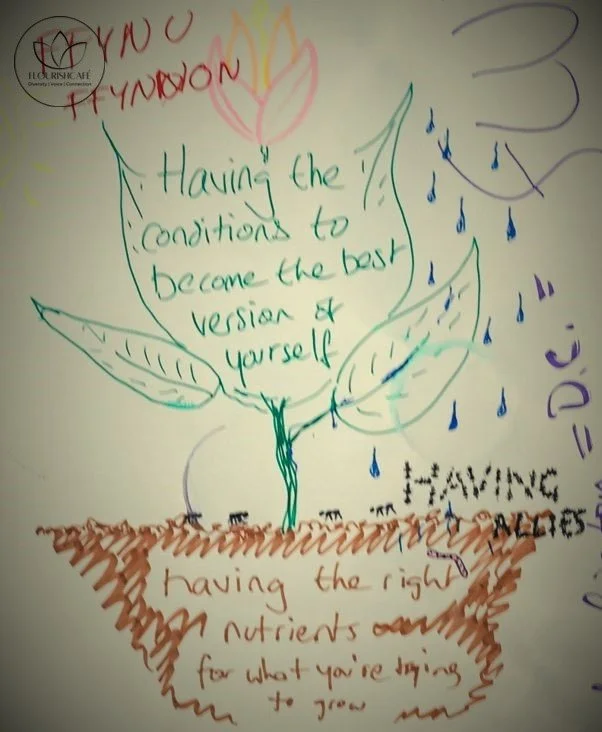 FFYNU
FFYNNON
FLOURISHCAFÉ
Diversity | Voice | Connection
Having the
conditions to
become the best
version of
yourself
= D.C. =
HAVING
ALLIES
having the right
nutrients
for what you're trying
to grow